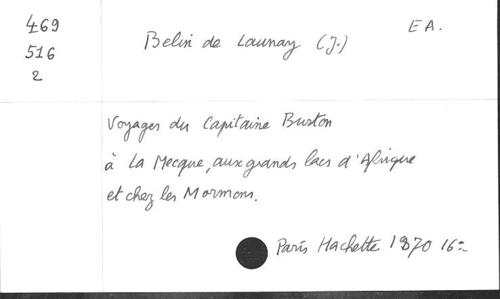 469
516
2
Belin de Launay (J.)
E A.
Voyages du Capitaine Burton
à La Mecque, aux grands lacs d'Afrique
et chez les Mormons.
Paris Hachette 1870 16º